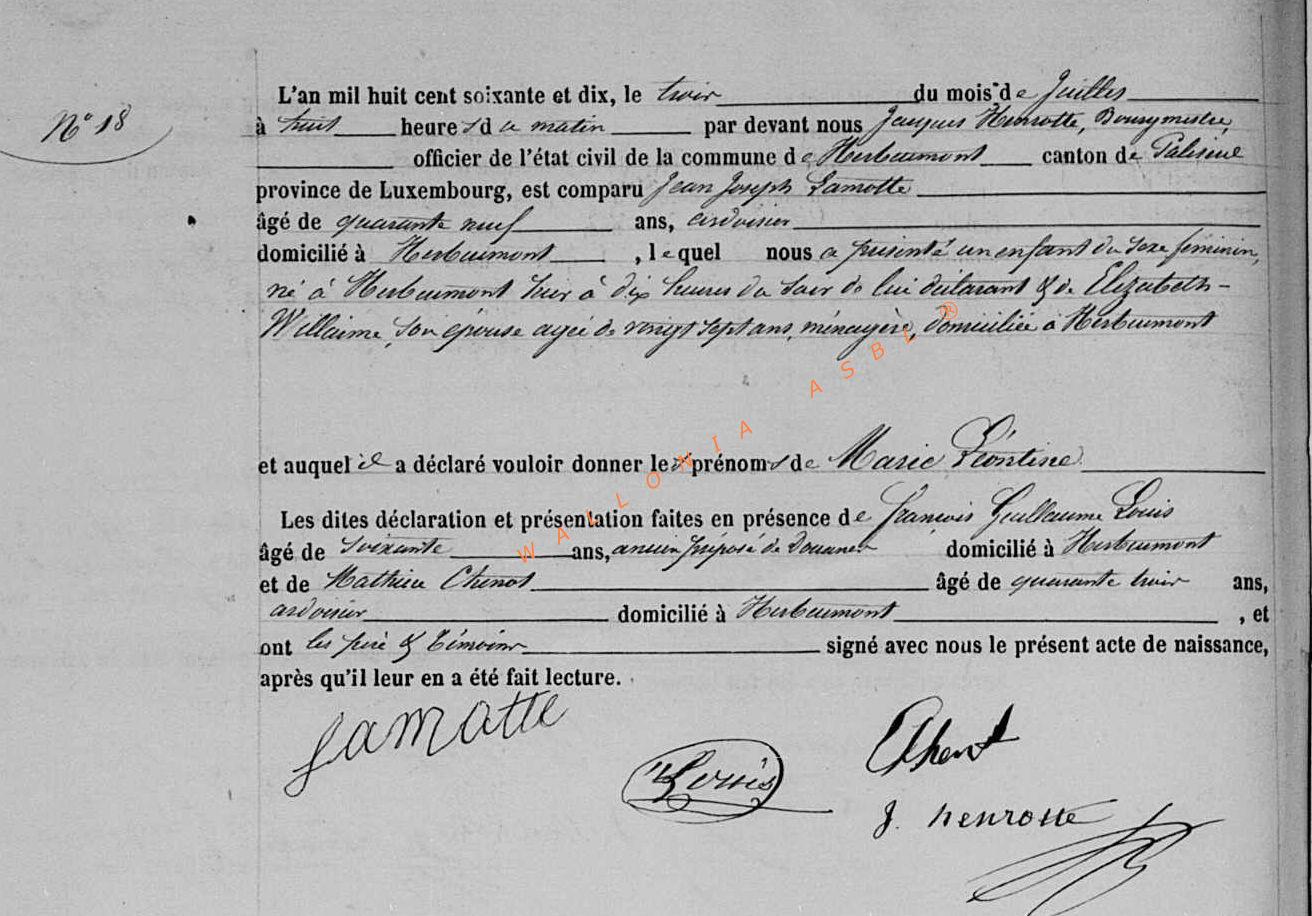 N° 18
L'an mil huit cent soixante et dix, le trois du mois de Juillet
à huit heures du matin par devant nous Jacques Henrotte, Bourgmestre,
officier de l'état civil de la commune de Herbeumont canton de Paliseul
province de Luxembourg, est comparu Jean Joseph Lamotte
âgé de quarante neuf ans, ardoisier
domicilié à Herbeumont, lequel nous a présenté un enfant du sexe féminin,
né à Herbeumont hier à dix heures du soir de lui déclarant & de Elizabeth-
Willaime, son épouse agée de vingt sept ans, ménagère, domiciliée à Herbeumont
et auquel il a déclaré vouloir donner les prénoms de Marie Léontine
Les dites déclaration et présentation faites en présence de François Guillaume Louis
âgé de soixante ans, ancien préposé de Douanes domicilié à Herbeumont
et de Mathieu Chenot âgé de quarante trois ans,
ardoisier domicilié à Herbeumont, et
ont les père & témoins signé avec nous le présent acte de naissance,
après qu'il leur en a été fait lecture.
Lamotte
Louis
Chenot
J. henrotte
WALLONIA ASBL ®